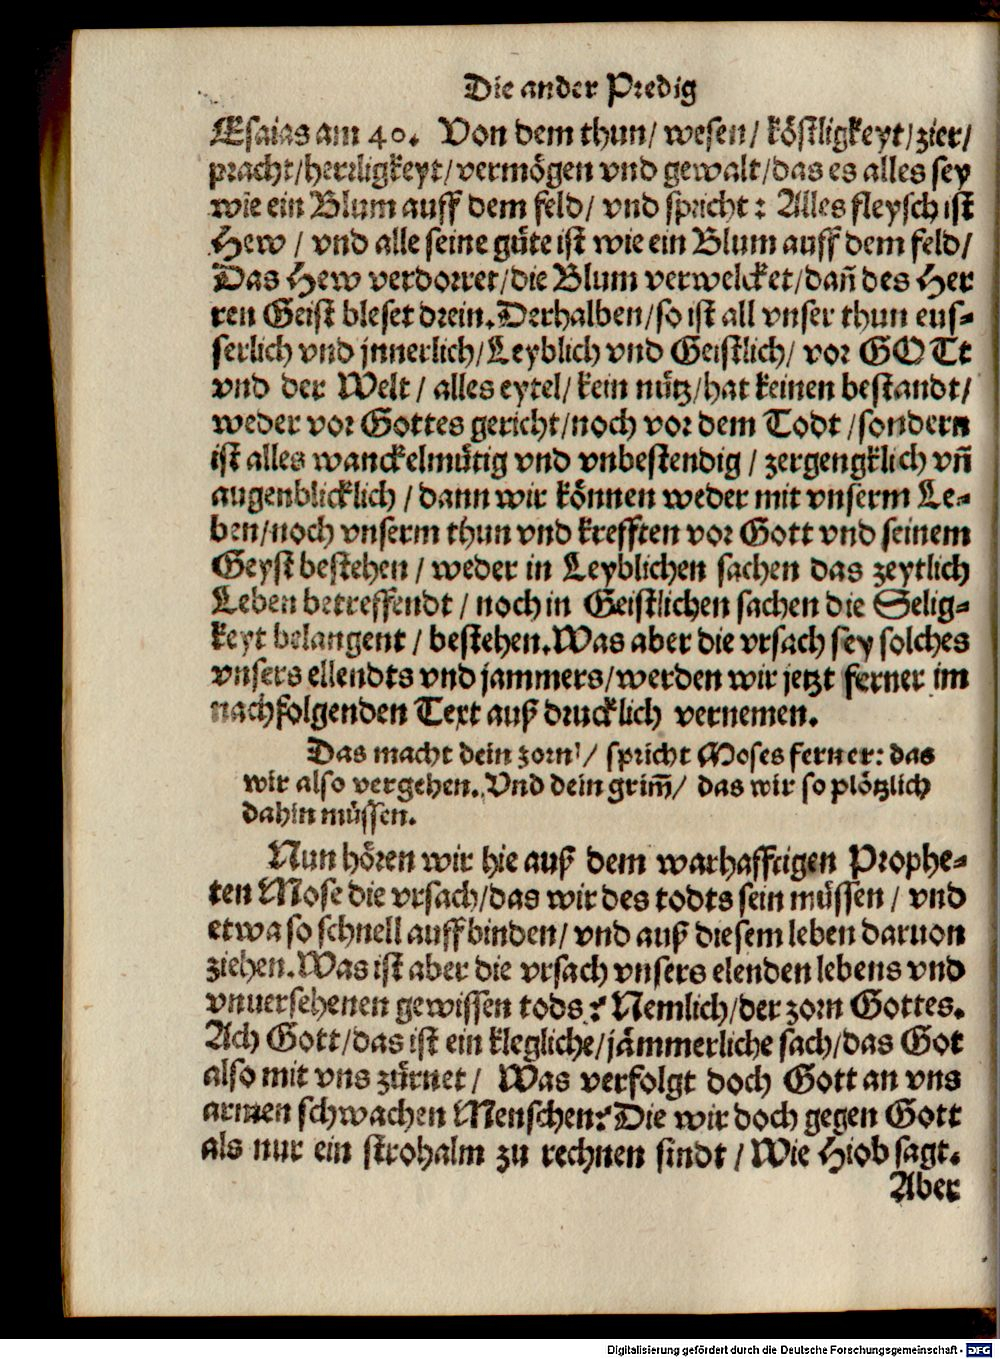 Die ander Predig
Esaias am 40. Von dem thun/ wesen/ köstligkeyt/zier/
pracht/herrligkeyt/vermögen vnd gewalt/das es alles sey
wie ein Blum auff dem feld/ vnd spricht: Alles fleysch ist
Hew / vnd alle seine güte ist wie ein Blum auff dem feld/
Das Hew verdorret/die Blum verwelcket/dañ des Her
ren Geist bleset drein. Derhalben/so ist all vnser thun eus-
serlich vnd jnnerlich/Leyblich vnd Geistlich/ vor GOTt
vnd der Welt / alles eytel/ kein nütz/hat keinen bestandt/
weder vor Gottes gericht/noch vor dem Todt /sondern
ist alles wanckelmütig vnd vnbestendig / zergengklich vñ
augenblicklich / dann wir können weder mit vnserm Le-
ben/noch vnserm thun vnd krefften vor Gott vnd seinem
Geyst bestehen / weder in Leyblichen sachen das zeytlich
Leben betreffendt / noch in Geistlichen sachen die Selig-
keyt belangent / bestehen. Was aber die vrsach sey solches
vnsers ellendts vnd jammers/werden wir jetzt ferner im
nachfolgenden Text auß drucklich vernemen.
Das macht dein zorn/ spricht Moses ferner: das
wir also vergehen. Vnd dein grim̃/ das wir so plötzlich
dahin müssen.
Nun hören wir hie auß dem warhafftigen Prophe-
ten Mose die vrsach/das wir des todts sein müssen / vnd
etwa so schnell auffbinden/ vnd auß diesem leben daruon
ziehen. Was ist aber die vrsach vnsers elenden lebens vnd
vnuersehenen gewissen tods? Nemlich/der zorn Gottes.
Ach Gott/das ist ein klegliche/jämmerliche sach/das Got
also mit vns zürnet/ Was verfolgt doch Gott an vns
armen schwachen Menschen? Die wir doch gegen Gott
als nur ein strohalm zu rechnen sindt / Wie Hiob sagt.
Aber
Digitalisierung gefördert durch die Deutsche Forschungsgemeinschaft - DFG